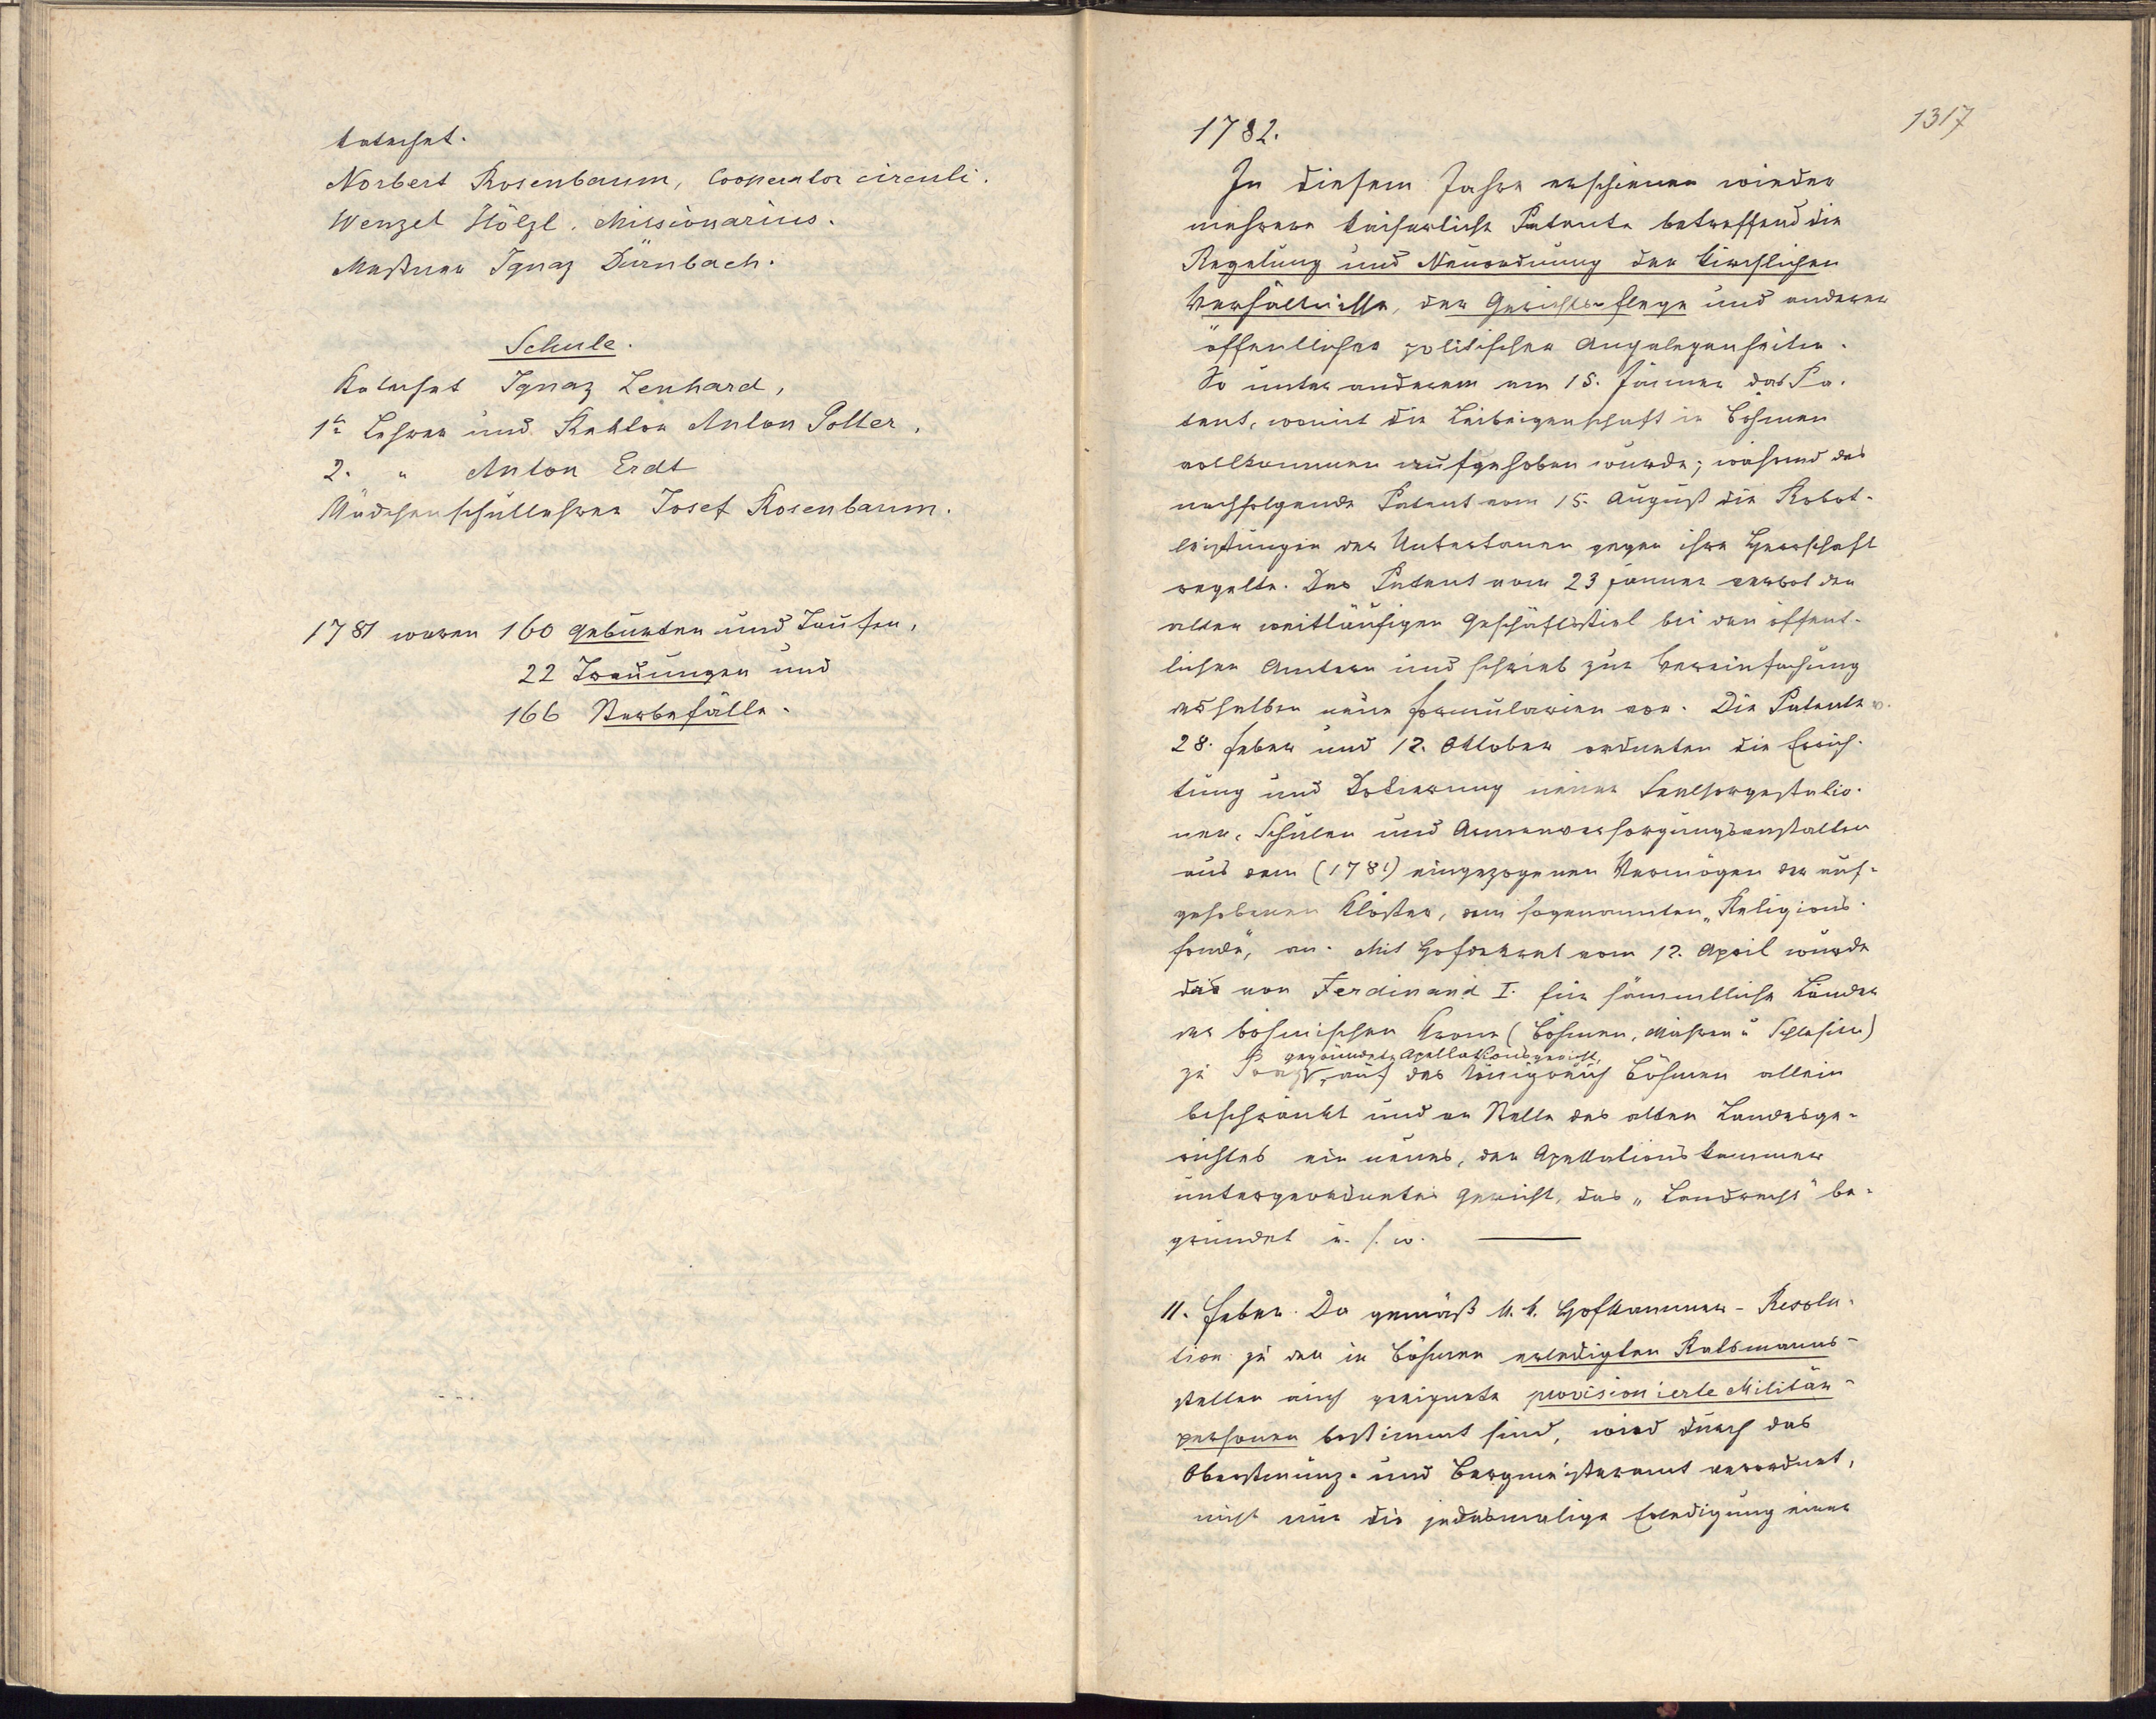 Katechet.
Norbert Rosenbaum, Cooperator circuli.
Wenzel Hölzl. Missionarius.
Meßner Ignaz Dürnbach.
Schule.
Katechet Ignaz Lenhard,
1r Lehrer und Rektor Anton Polter.
2. " Anton Erdt
Mädchenschullehrer Josef Rosenbaum.
1781 waren 160 Geburten und Taufen,
22 Trauungen und
166 Sterbefälle.
1317
1782.
In diesem Jahre erschienen wieder
mehrere kaiserliche Patente betreffend die
Regelung und Neuordnung der kirchlichen
Verhältnisse, der Gerichtspflege und anderer
öffentlicher politischer Angelegenheiten.
So unter anderem am 15. Jänner das Pa-
tent, womit die Leibeigenschaft in Böhmen
vollkommen aufgehoben wurde; während das
nachfolgende Patent vom 15. August die Robot-
leistungen der Untertanen gegen ihre Herrschaft
regelte. Das Patent vom 23 Jänner verbot den
alten weitläufigen Geschäftsstiel bei den öffent-
lichen Ämtern und schrieb zur Vereinfachung
desselben neue Formularien vor. Die Patente v.
28. Feber und 12. Oktober ordneten die Errich-
tung und Dotierung neuer Seelsorgestatio-
nen, Schulen und Armenversorgungsanstalten
aus dem (1781) eingezogenen Vermögen der auf-
gehobenen Klöster, dem sogenannten „Religions-
fonde", an. Mit Hofdekret vom 12. April wurde
das von Ferdinand I. für sämmtliche Länder
der böhmischen Krone (Böhmen, Mähren u Schlesien)
gegründete Apellationsgericht,
zu Prag, auf das Königreich Böhmen allein
beschränkt und an Stelle des alten Landesge-
richtes ein neues, der Apellationskammer
untergeordnetes Gericht, das „Landrecht" be-
gründet u. s. w.
11. Feber. Da gemäß k. k. Hofkammer-Resolu-
tion zu den in Böhmen erledigten Ratsmanns-
stellen auch geeignete provisionierte Militär-
personen bestimmt sind, wird durch das
Oberstmünz- und Bergmeisteramt verordnet,
nicht nur die jedesmalige Erledigung einer